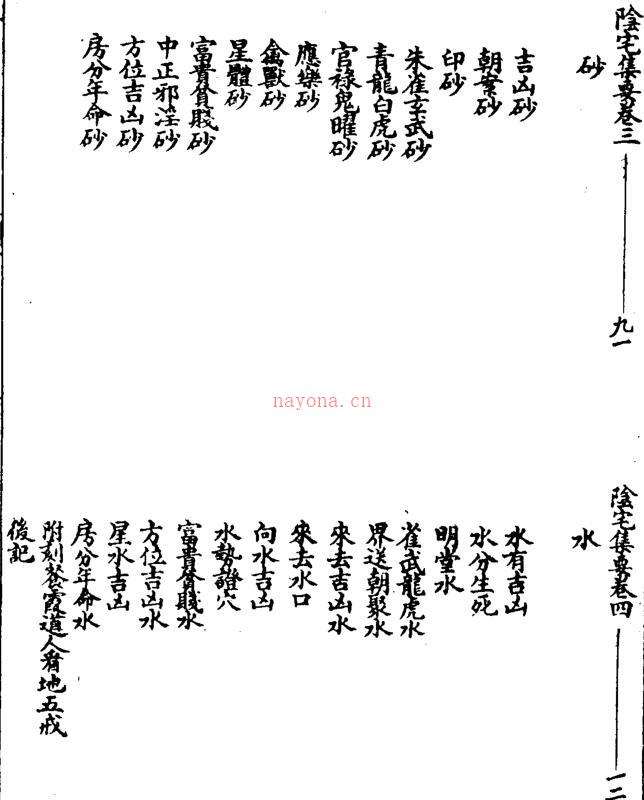 陰宅集要卷三
九一
砂
吉凶砂
朝案砂
印砂
朱雀玄武砂
青龍白虎砂
官祿鬼曜砂
應樂砂
禽獸砂
星體砂
富貴貧賤砂
中正邪淫砂
方位吉凶砂
房分年命砂
nayona.cn
陰宅集要卷四
一二
水
水有吉凶
水分生死
明堂水
雀武龍虎水
界送朝聚水
來去吉凶水
來去水口
向水吉凶
水勢證穴
富貴貧賤水
方位吉凶水
星水吉凶
房分年命水
附刻餐霞道人看地五戒
後記